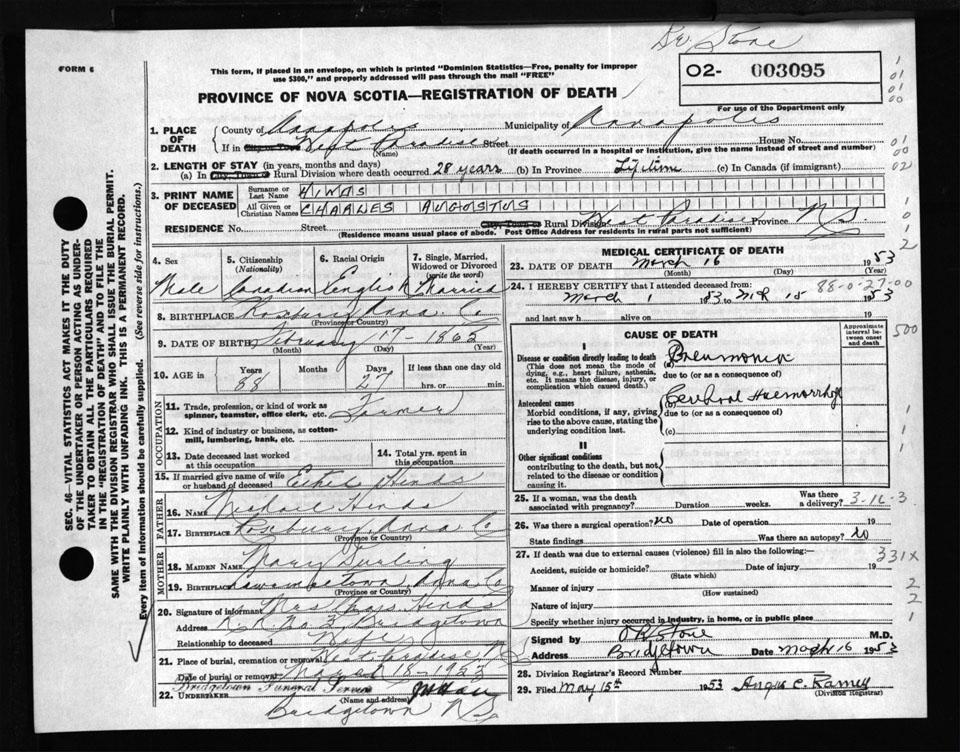 Dr. Stone
FORM 6
This form, if placed in an envelope, on which is printed "Dominion Statistics—Free, penalty for improper
use $300," and properly addressed will pass through the mail "FREE"
02- 003095
For use of the Department only
PROVINCE OF NOVA SCOTIA—REGISTRATION OF DEATH
1. PLACE OF DEATH { County of Annapolis Municipality of Annapolis
If in City, Town or West Paradise Street House No.
(Name) (If death occurred in a hospital or institution, give the name instead of street and number)
2. LENGTH OF STAY (in years, months and days)
(a) In City, Town or Rural Division where death occurred 28 years (b) In Province Lifetime (c) In Canada (if immigrant)
3. PRINT NAME OF DECEASED { Surname or Last Name HINDS
All Given or Christian Names CHARLES AUGUSTUS
RESIDENCE No. Street City, Town or Rural Division West Paradise Province N.S.
(Residence means usual place of abode. Post Office Address for residents in rural parts not sufficient)
4. Sex Male
5. Citizenship (Nationality) Canadian
6. Racial Origin English
7. Single, Married, Widowed or Divorced (write the word) Married
8. BIRTHPLACE Roxbury Anna. Co
(Province or Country)
9. DATE OF BIRTH February 17 - 1865
(Month) (Day) (Year)
10. AGE in { Years 88 Months Days 27 If less than one day old
hrs. or min.
OCCUPATION
11. Trade, profession, or kind of work as spinner, teamster, office clerk, etc. Farmer
12. Kind of industry or business, as cotton-mill, lumbering, bank, etc.
13. Date deceased last worked at this occupation
14. Total yrs. spent in this occupation
15. If married give name of wife or husband of deceased Ethel Hinds
FATHER
16. NAME Michael Hinds
17. BIRTHPLACE Roxbury Anna Co
(Province or Country)
MOTHER
18. MAIDEN NAME Mary Durling
19. BIRTHPLACE Lawrencetown Anna Co
(Province or Country)
20. Signature of informant Mrs Chas Hinds
Address R.R. No 3, Bridgetown
Relationship to deceased Wife
21. Place of burial, cremation or removal West Paradise N.S.
Date of burial or removal March 18 - 1953
22. UNDERTAKER Bridgetown Funeral Service
(Name and address)
Bridgetown N.S.
MEDICAL CERTIFICATE OF DEATH
23. DATE OF DEATH March 16 1953
(Month) (Day) (Year)
24. I HEREBY CERTIFY that I attended deceased from:
March 1 1953, to Mch 15 1953
88-0-27-00
and last saw h alive on
CAUSE OF DEATH
Approximate interval between onset and death
500
I
Disease or condition directly leading to death
(This does not mean the mode of dying, e.g., heart failure, asthenia, etc. It means the disease, injury, or complication which caused death.)
(a) Pneumonia
due to (or as a consequence of)
Antecedent causes
Morbid conditions, if any, giving rise to the above cause, stating the underlying condition last.
Cerebral Haemorrhage
due to (or as a consequence of)
(c)
II
Other significant conditions
contributing to the death, but not related to the disease or condition causing it.
25. If a woman, was the death associated with pregnancy? Duration weeks. Was there a delivery?
3-16-3
26. Was there a surgical operation? no Date of operation 19
State findings Was there an autopsy? no
27. If death was due to external causes (violence) fill in also the following:
331X
Accident, suicide or homicide? Date of injury 19
(State which)
Manner of injury
(How sustained)
Nature of injury
Specify whether injury occurred in industry, in home, or in public place
Signed by Stone M.D.
Address Bridgetown Date March 16 1953
28. Division Registrar's Record Number
29. Filed May 15th 1953 Angus C. Ramey
(Division Registrar)
SEC. 46—VITAL STATISTICS ACT MAKES IT THE DUTY
OF THE UNDERTAKER OR PERSON ACTING AS UNDER-
TAKER TO OBTAIN ALL THE PARTICULARS REQUIRED
IN THE "REGISTRATION OF DEATH" AND TO FILE THE
SAME WITH THE DIVISION REGISTRAR WHO SHALL ISSUE THE BURIAL PERMIT.
WRITE PLAINLY WITH UNFADING INK. THIS IS A PERMANENT RECORD.
Every item of information should be carefully supplied. (See reverse side for instructions.)
1
01
01
00
01
00
02
1
0
1
2
1
1
2
2
1